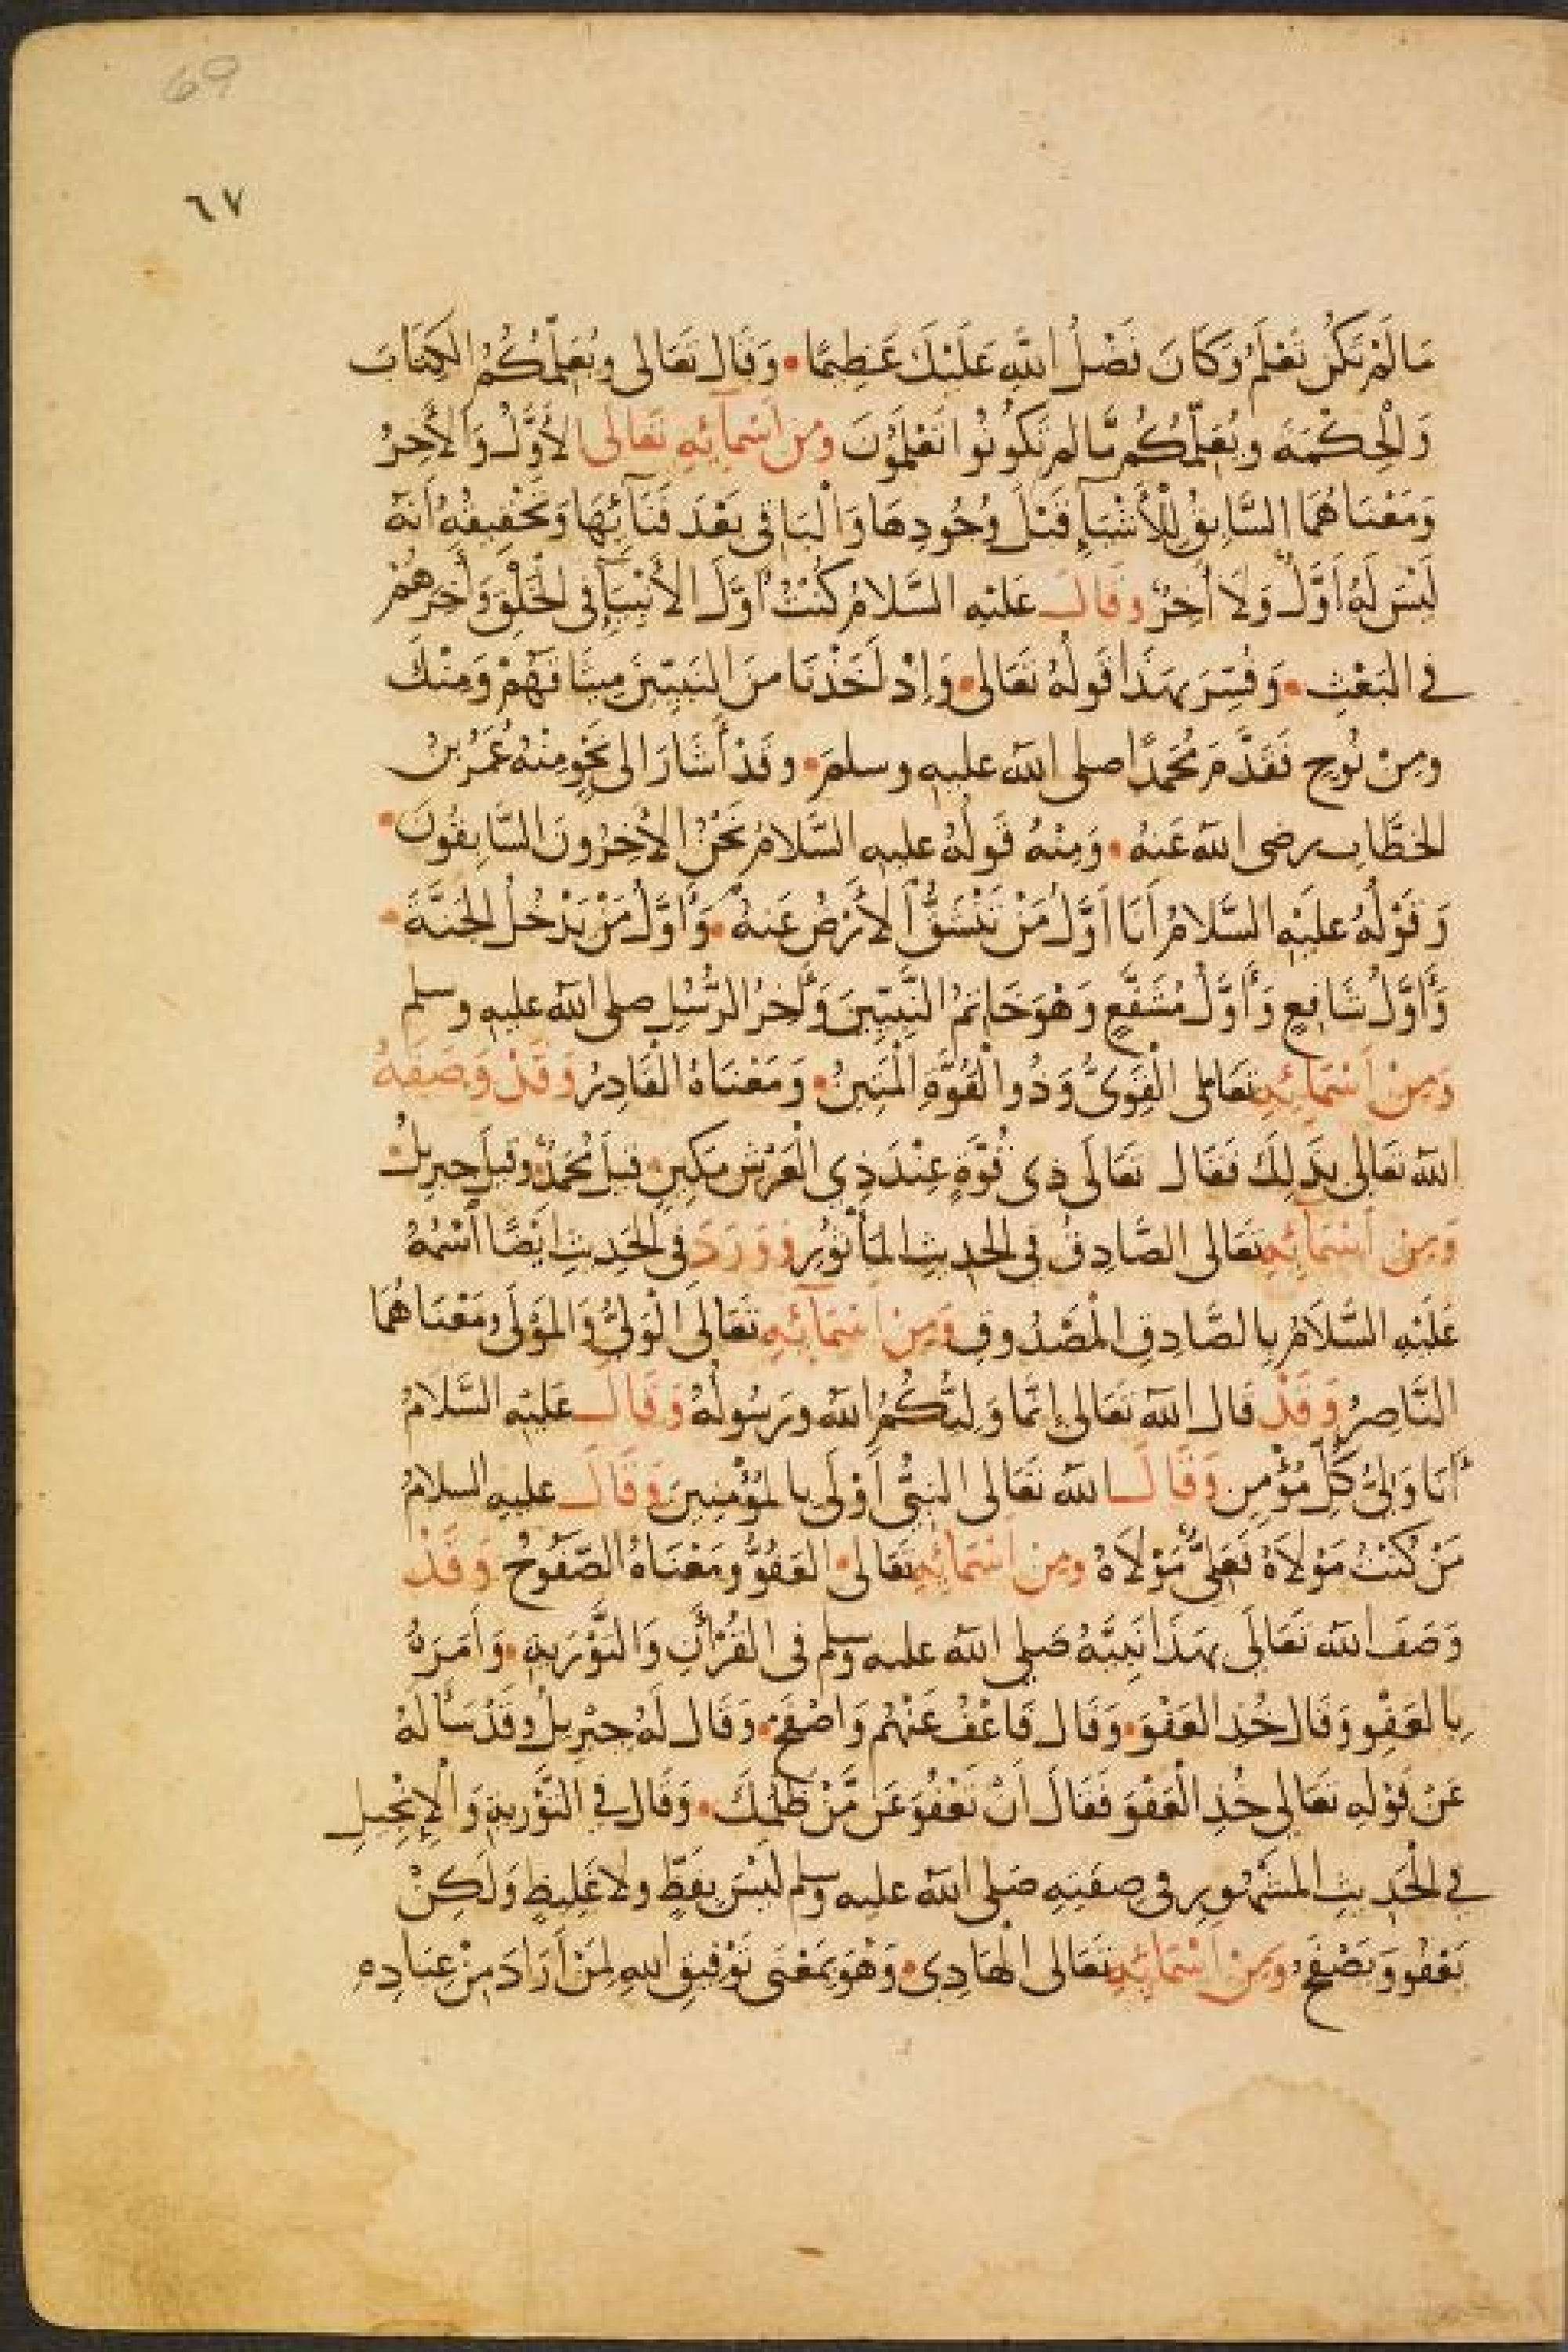 69
٦٧
مَا لَمْ تَكُنْ تَعْلَمُ وَكَانَ فَضْلُ اللهِ عَلَيْكَ عَظِيمًا • وَقَالَ تَعَالى وَيُعَلِّمُكُمُ الكِتَابَ
وَالْحِكْمَةَ وَيُعَلِّمُكُمْ مَّا لم تَكُونُوا تَعْلَمُوُنَ وَمِنْ أَسْمَآئِهِ تَعَالَى الأَوَّلُ وَالأَخِرُ
وَمَعْنَاهُمَا السَّابِقُ لِلْأَشْيَآءِ قَبْلَ وُجُودِهَا وَالْبَاقي بَعْدَ فَنَآئِهَا وَتَحْقِيقُهُ أَنَّهُ
لَيْسَ لَهُ أَوَّلٌ وَلَا أَخِرٌ وَقَالَ عَلَيْهِ السَّلامُ كُنْتُ أَوَّلَ الأَنْبِيَآءِ فِي الْخَلْقِ وَأَخِرَهُمْ
في البَعْثِ • وَفُسِّرَ بِهَذَا قَوْلُهُ تَعَالى • وَإِذْ أَخَذْنَا مِنَ النَبِيِّينَ مِيثَاقَهُمْ وَمِنْكَ
وَمِنْ نُوحٍ فَقَدَّمَ مُحَمَّدًا صلى الله عليه وسلمَ • وَقَدْ أَشَارَ إلى نَحْوٍ مِنْهُ عُمَرُ بنُ
الخطَّابِ رضى الله عَنهُ • وَمِنْهُ قَولُهُ عليهِ السَّلامُ نَحْنُ الأَخِرُونَ السَّابِقُونَ •
وَقَوْلُهُ عليْهِ السَّلامُ أَنَا أَوَّلُ مَنْ تَنْشَقُّ الأَرْضُ عَنهُ • وَأَوَّلُ مَنْ يَدْخُلُ الجَنَّةَ •
وَأَوَّلُ شَافِعٍ وَأَوَّلُ مُشَفَّعٍ وَهُوَ خَاتِمُ النَّبِيّينَ وَأَخِرُ الرُّسُلِ صلى الله عليه وسلم
وَمِنْ أَسْمَآئِهِ تَعَالى الْقَوِىُّ وَذُو الْقُوَّةِ الْمَتِينُ • وَمَعْنَاهُ الْقَادِرُ وَقَدْ وَصَفَهُ
الله تَعَالى بِذَلِكَ فَقَالَ تَعَالَى ذِى قُوَّةٍ عِنْدَ ذِي الْعَرْشِ مَكِينٍ • قيلَ مُحَمَّدٌ وقيلَ جِبرِيلُ •
وَمِنْ أَسْمَآئِهِ تَعَالى الصَّادِقُ فِي الحَدِيثِ المَأْثُورِ وَوَرَدَ فِي الحَدِيثِ أَيْضًا أَسْمُهُ
عَلَيْهِ السَّلاَمُ بِالصَّادِقِ الْمَصْدُوقِ وَمِنْ أَسْمَآئِهِ تَعَالَى الْوَلِيُّ وَالْمَوْلَى وَمَعْنَاهُمَا
النَّاصِرُ وَقَدْ قَالَ الله تَعَالى إِنَّمَا وَلِيُّكُمُ الله وَرَسُولُهُ وَقَالَ عَلَيْهِ السَّلامُ
أَنَا وَلِيُّ كُلِّ مُؤْمِنٍ وَقَالَ الله تَعَالى النَبِيُّ أَوْلَى بِالْمُؤْمِنِينَ وَقَالَ عليهِ السلامُ
مَنْ كُنْتُ مَوْلَاهُ فَعَلِيٌّ مَوْلَاهُ وَمِنْ أَسْمَائِهِ تَعَالى • العَفُوُّ وَمَعْنَاهُ الصَّفُوحُ وَقَدْ
وَصَفَ الله تَعَالَى بِهَذَا نَبِيَّهُ صَلى الله عليه وسلم فى القُرْأَنِ وَالتَّوْرَيةِ • وَأَمَرَهُ
بِالعَفْوِ وَقَالَ خُذِ العَفْوَ • وَقَالَ فَاعْفُ عَنْهُمْ وَاصْفَحْ • وَقَالَ لَهُ جِبْرِيلُ وَقَدْ سَأَلَهُ
عَنْ قَوْلِهِ تَعَالى خُذِ الْعَفْوَ فَقَالَ أَنْ تَعْفُوَ عَنْ مَّنْ ظَلَمَكَ • وَقَالَ في التَّوْريةِ وَالْإِنْجِيلِ
في الْحَدِيثِ المَشْهُورِ فى صِفَتِهِ صَلى الله عليه وسلم لَيْسَ بِفَظٍّ ولا غَلِيظٍ وَلَكِنْ
يَعْفُو وَيَصْفَحُ وَمِنْ أَسْمَآئِهِ تَعَالى الْهَادِى • وَهُوَ بِمَعْنَى تَوْفِيقِ اللهِ لِمَنْ أَرَادَ مِنْ عِبَادِهِ